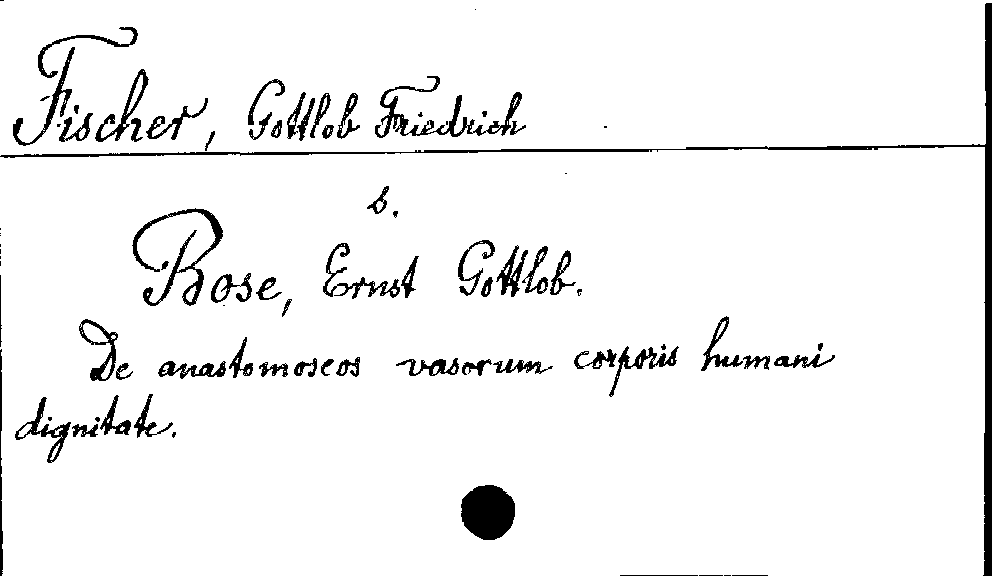 Fischer, Gottlob Friedrich
s.
Bose, Ernst Gottlob.
De anastomoseos vasorum corporis humani
dignitate.